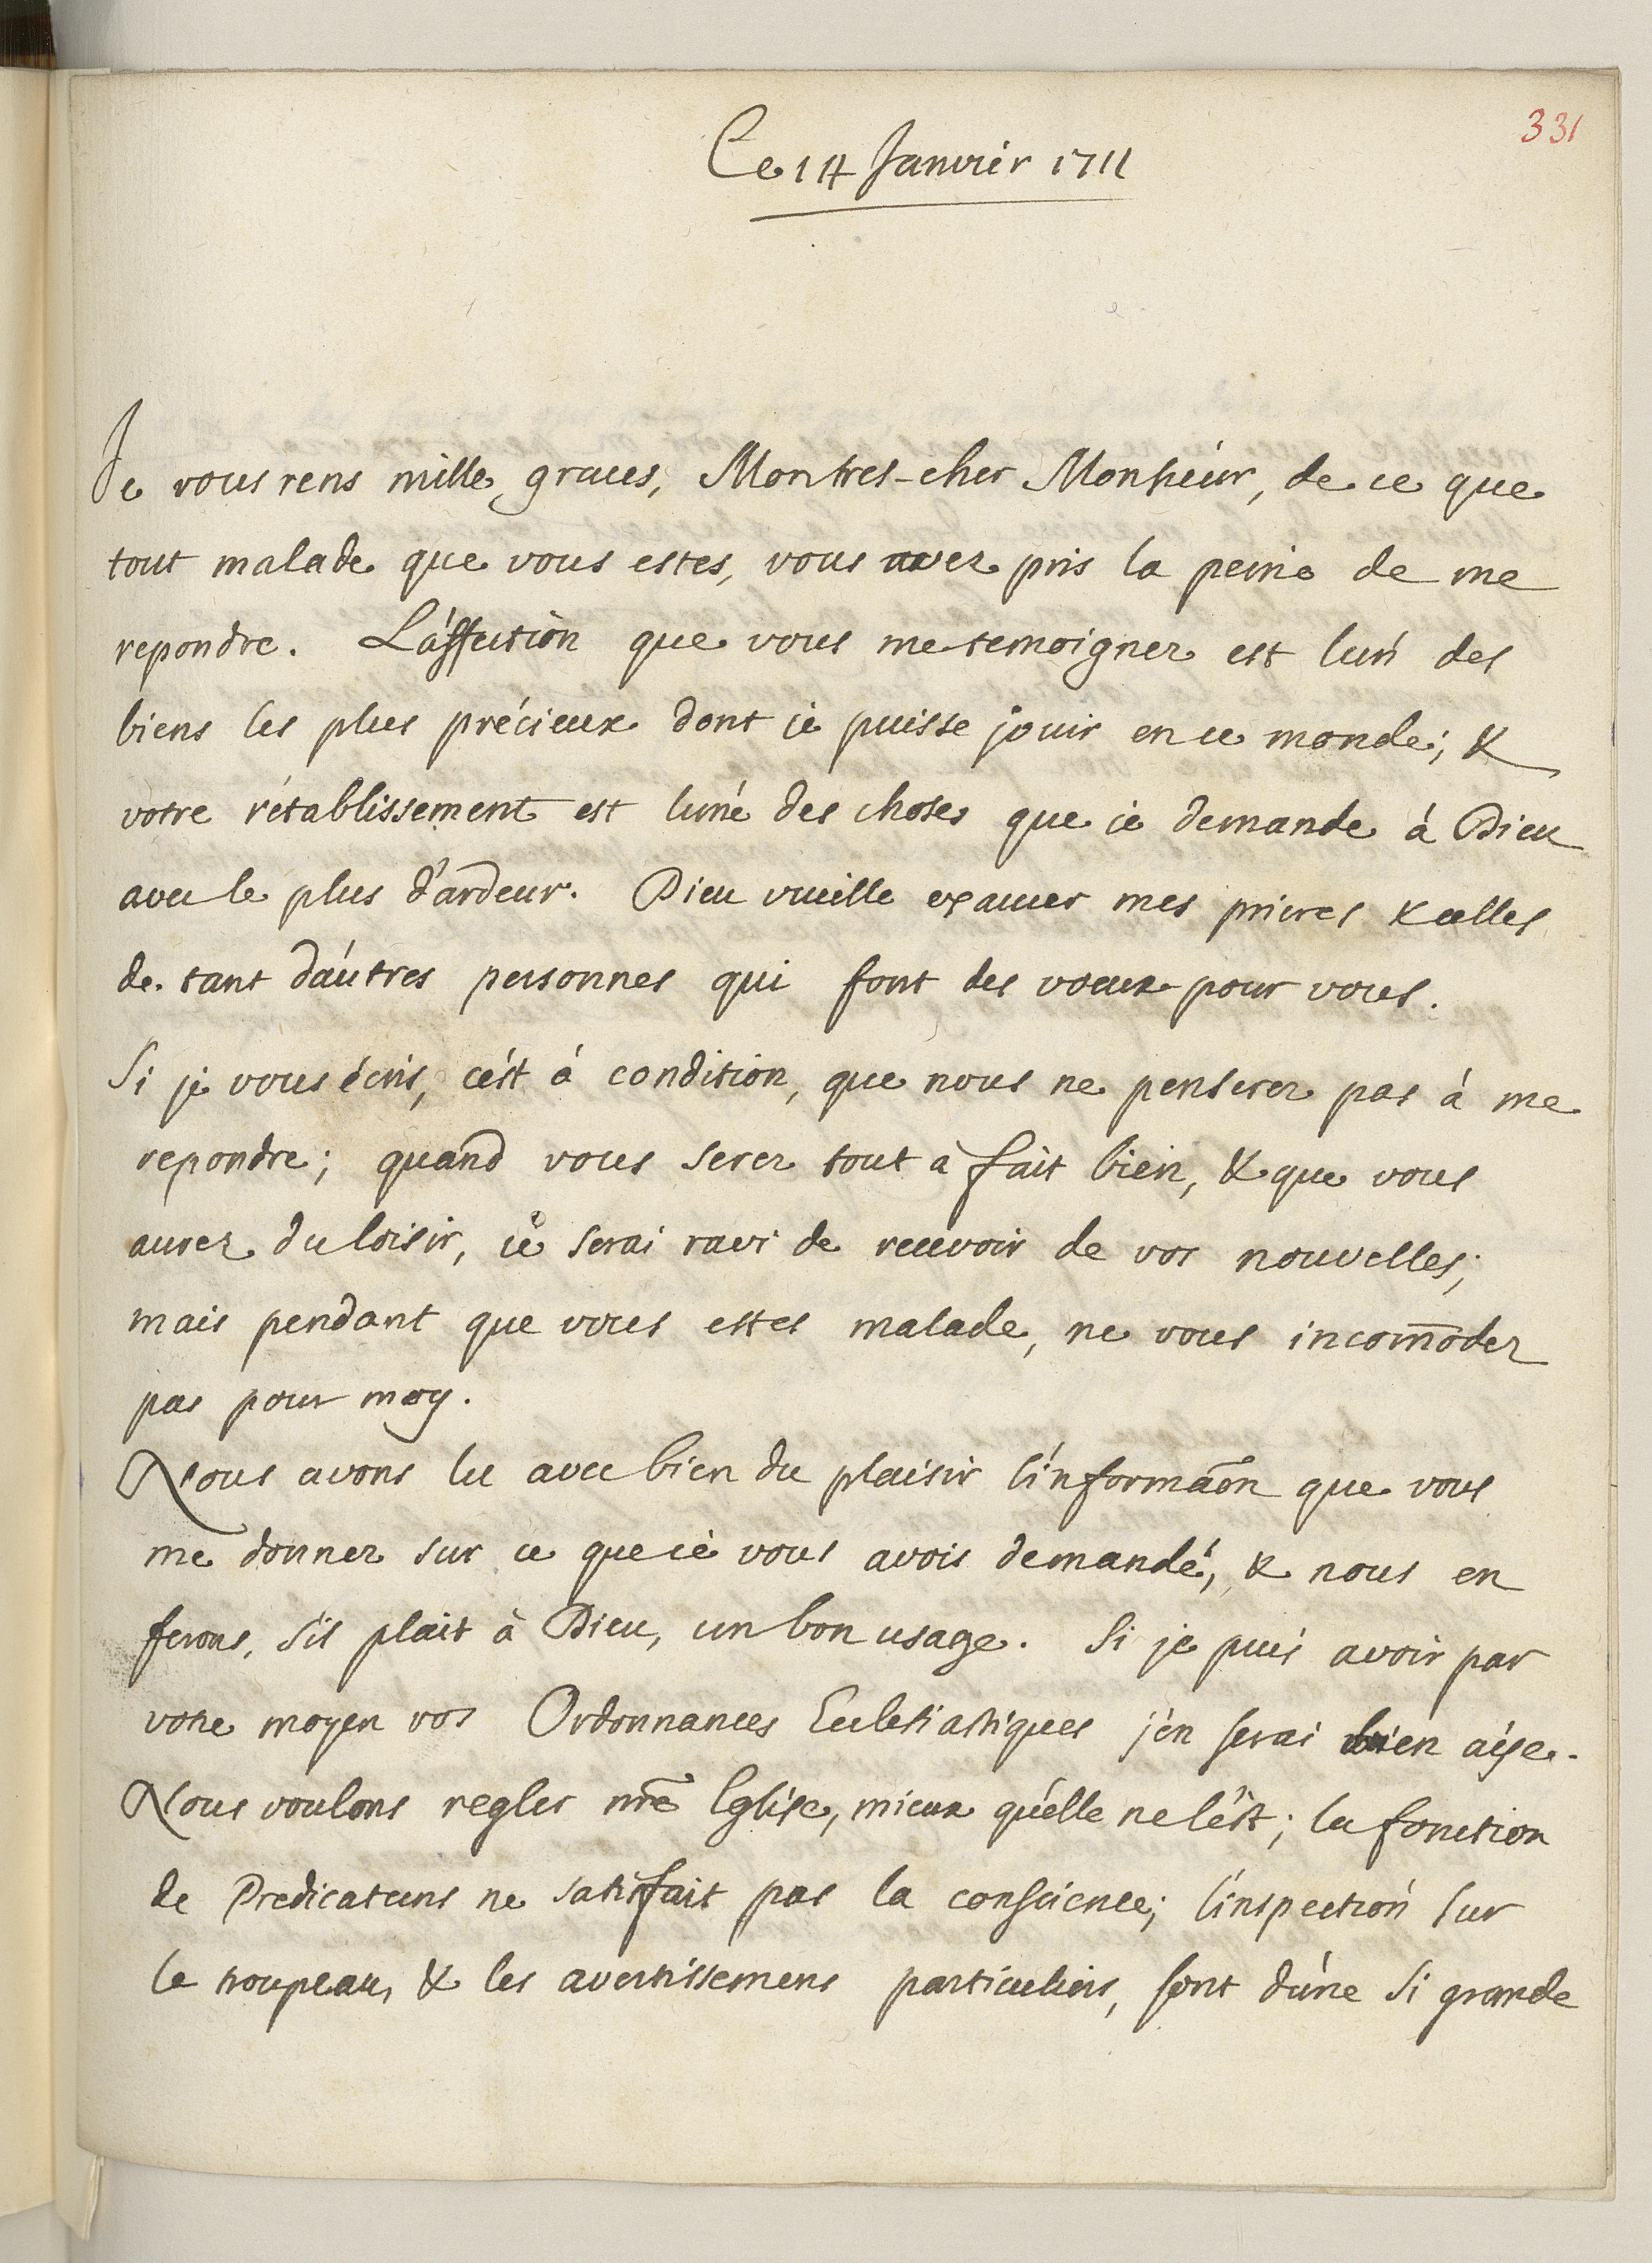 331
Ce 14 Janvier 1711
Je vous rens mille graces, Mon tres-cher Monsieur, de ce que
tout malade que vous estes, vous avez pris la peine de me
repondre. L'affection que vous me temoignez est l'un des
biens les plus précieux dont je puisse jouir en ce monde; &
votre rétablissement est l'une des choses que je demande à Dieu
avec le plus d'ardeur. Dieu vueille exaucer mes prieres & celles
de tant d'autres personnes qui font des voeux pour vous.
Si je vous écris, c'est à condition, que nous ne penserez pas à me
repondre; quand vous serez tout à fait bien, & que vous
aurez du loisir, je serai ravi de recevoir de vos nouvelles;
mais pendant que vous estes malade, ne vous incom̄odez
pas pour moy.
Nous avons lu avec bien du plaisir l'informãon que vous
me donnez sur ce que je vous avois demandé, & nous en
ferons, s'il plait à Dieu, un bon usage. Si je puis avoir par
votre moyen vos Ordonnances Ecclesiastiques j'en serai bien aise.
Nous voulons regler nr̃e Eglise, mieux qu'elle ne l'est; la fonction
de Predicateurs ne satisfait pas la conscience; l'inspection sur
le troupeau, & les avertissemens particuliers, sont d'une si grande